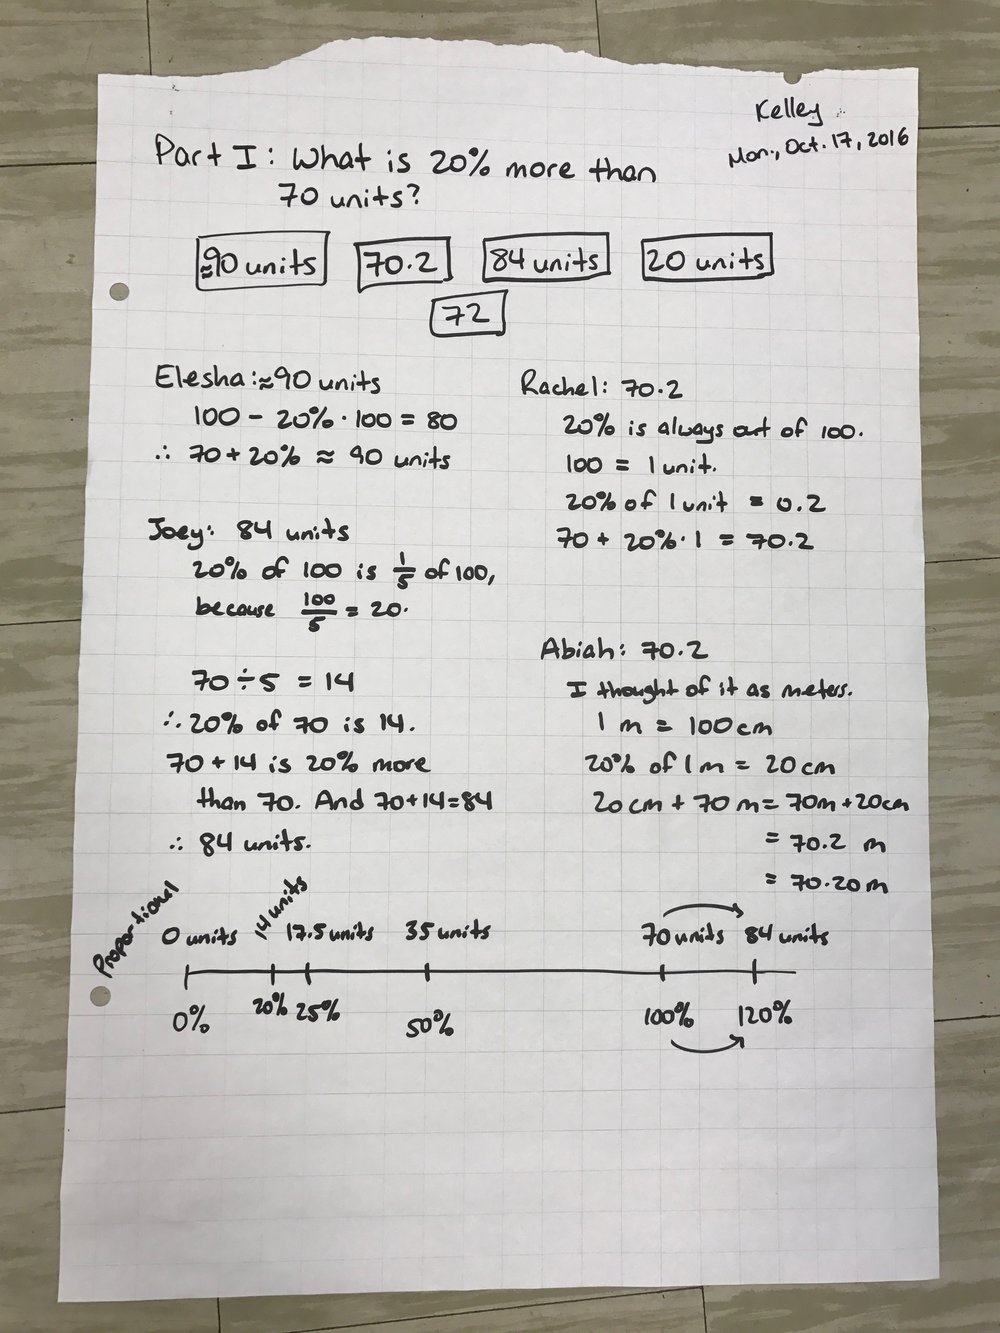 Kelley
Mon., Oct. 17, 2016
Part I: What is 20% more than
70 units?
≈90 units 70.2 84 units 20 units
72
Elesha: ≈90 units
100 - 20% · 100 = 80
∴ 70 + 20% ≈ 90 units
Joey: 84 units
20% of 100 is 1/5 of 100,
because 100/5 = 20.
70 ÷ 5 = 14
∴ 20% of 70 is 14.
70 + 14 is 20% more
than 70. And 70+14=84
∴ 84 units.
Rachel: 70.2
20% is always out of 100.
100 = 1 unit.
20% of 1 unit = 0.2
70 + 20% · 1 = 70.2
Abiah: 70.2
I thought of it as meters.
1 m = 100 cm
20% of 1 m = 20 cm
20 cm + 70 m = 70m + 20cm
= 70.2 m
= 70.20 m
Proportional
0 units 14 units 17.5 units 35 units 70 units 84 units
0% 20% 25% 50% 100% 120%